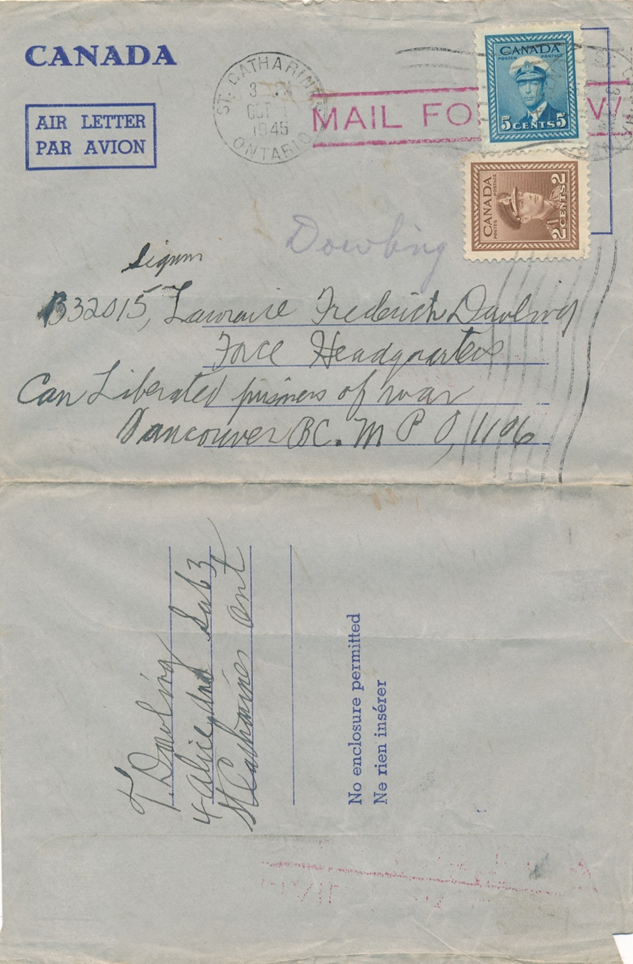 CANADA
AIR LETTER
PAR AVION
ST. CATHARINES
3 PM
OCT
1945
ONTARIO
MAIL FO
CANADA
POSTES POSTAGE
5 CENTS 5
CANADA
POSTES POSTAGE
2 CENTS 2
Dowling
B32015, Lawraine Frederick Dowling
Force Headquarters
Can Liberated prisoners of war
Vancouver BC. M P O, 1106
T. Dowling
4 alice Sub 3
St Catharines Ont
No enclosure permitted
Ne rien insérer